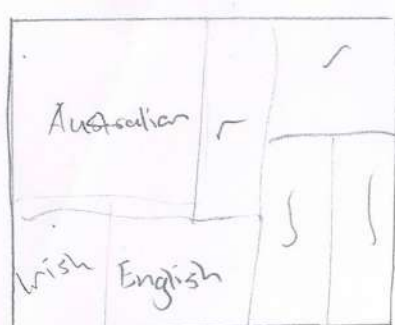 Australian
Irish English